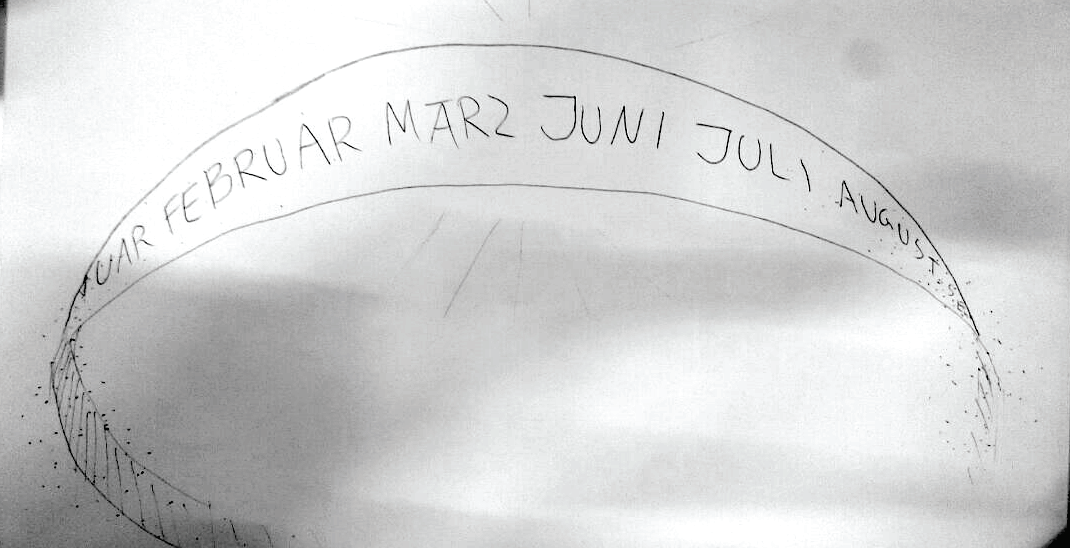 UAR FEBRUAR MARZ JUNI JULI AUGUST SE